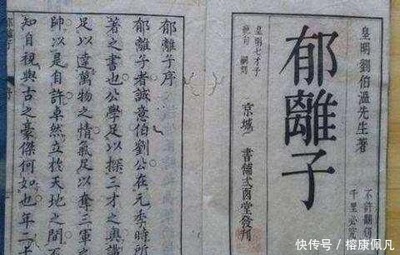 皇明劉伯溫先生著
郁離子
不許翻刻
千里必究
皇明七才子
絶句 嗣刻
京城 書舗 酉堂發刊
郁離子序
郁離子者誠意伯劉公在元季時所
著之書也公學足以探三才之奧識
足以達萬物之情氣足以奪三軍
帥以是自許卓然立於天地之間
知自視與古之豪傑何如也年二十
快传号 / 榕康佩凡